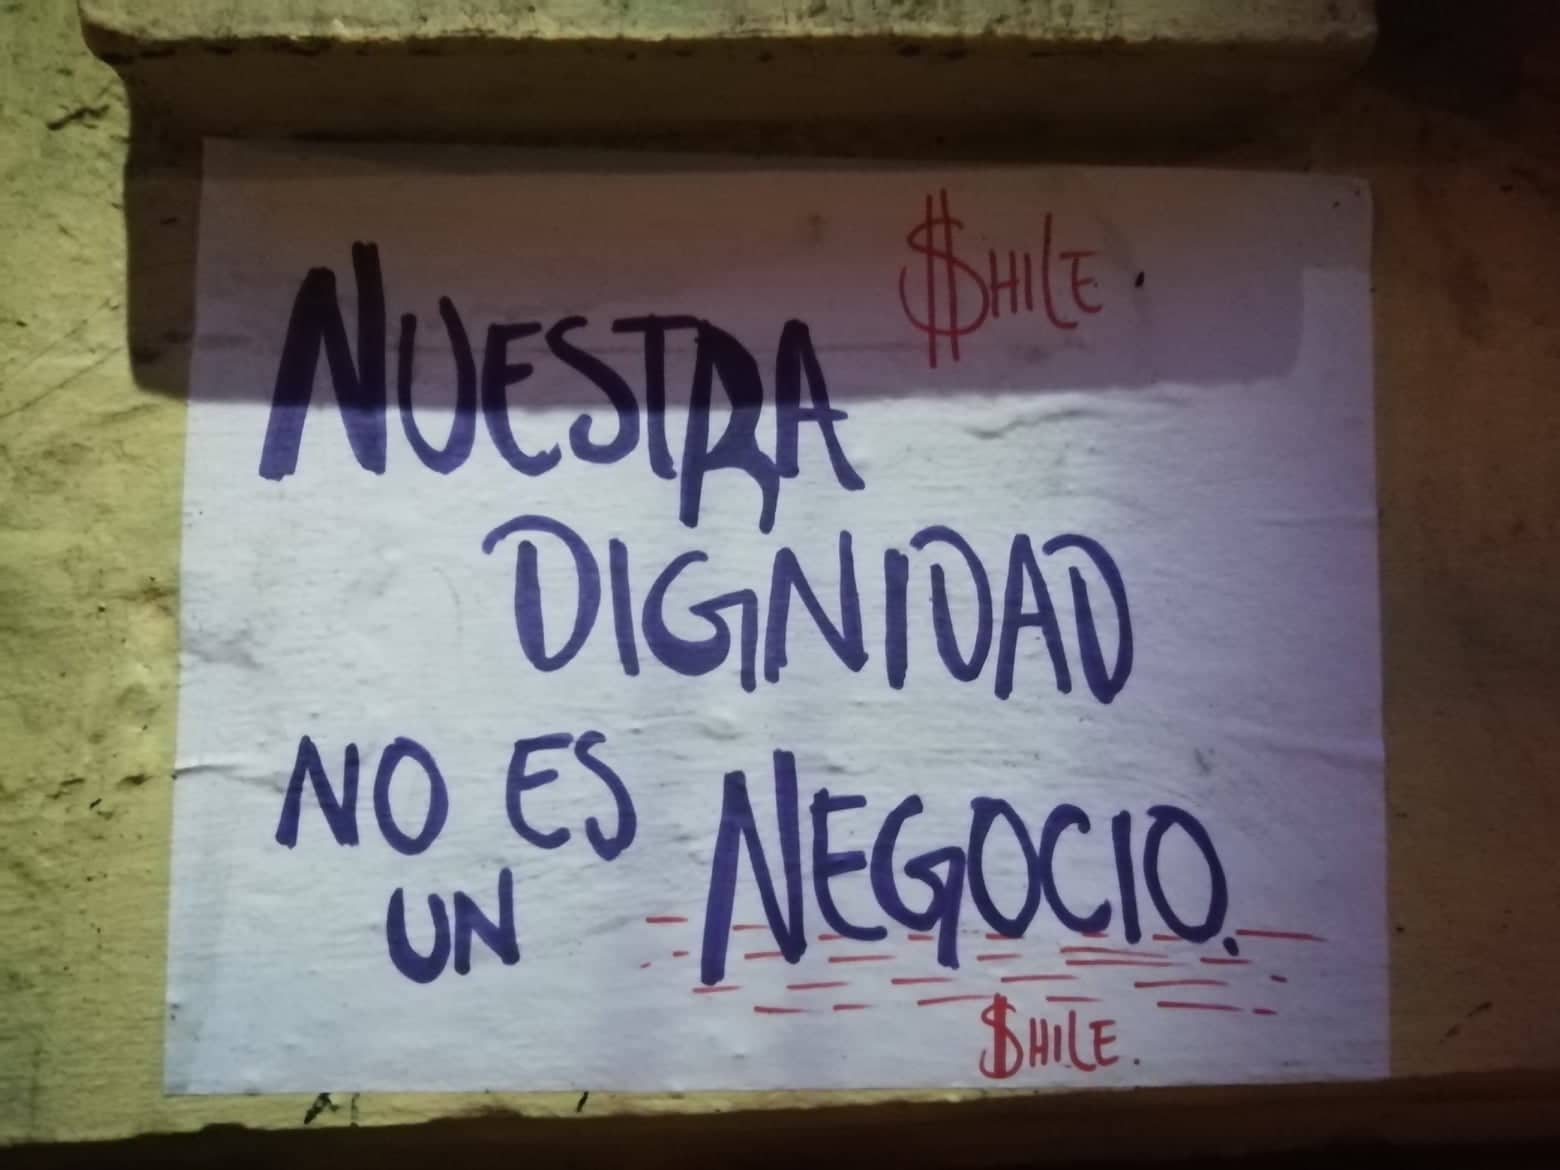 $HILE.
NUESTRA
DIGNIDAD
NO ES
UN NEGOCIO.
$HILE.